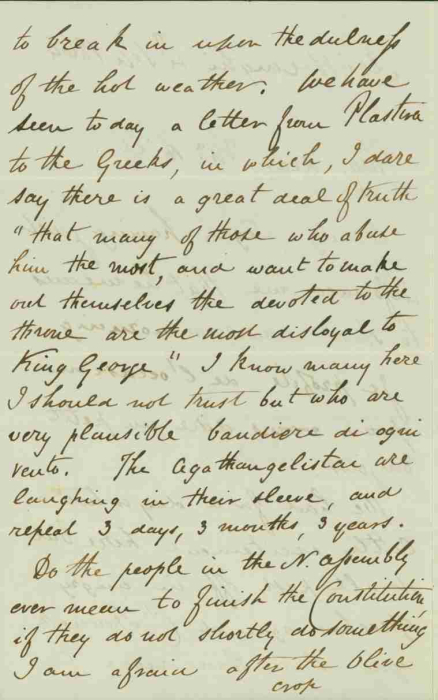 to break in upon the dulness
of the hot weather. We have
seen to day a letter from Plastira
to the Greeks, in which, I dare
say there is a great deal of truth
"that many of those who abuse
him the most, and want to make
out themselves the devoted to the
throne are the most disloyal to
King George" I know many here
I should not trust but who are
very plausible bandiere di ogni
vento. The Agathangelistae are
laughing in their sleeve, and
repeat 3 days, 3 months, 3 years.
Do the people in the N. Assembly
ever mean to finish the Constitution
if they do not shortly do something
I am afraid after the Olive
crop